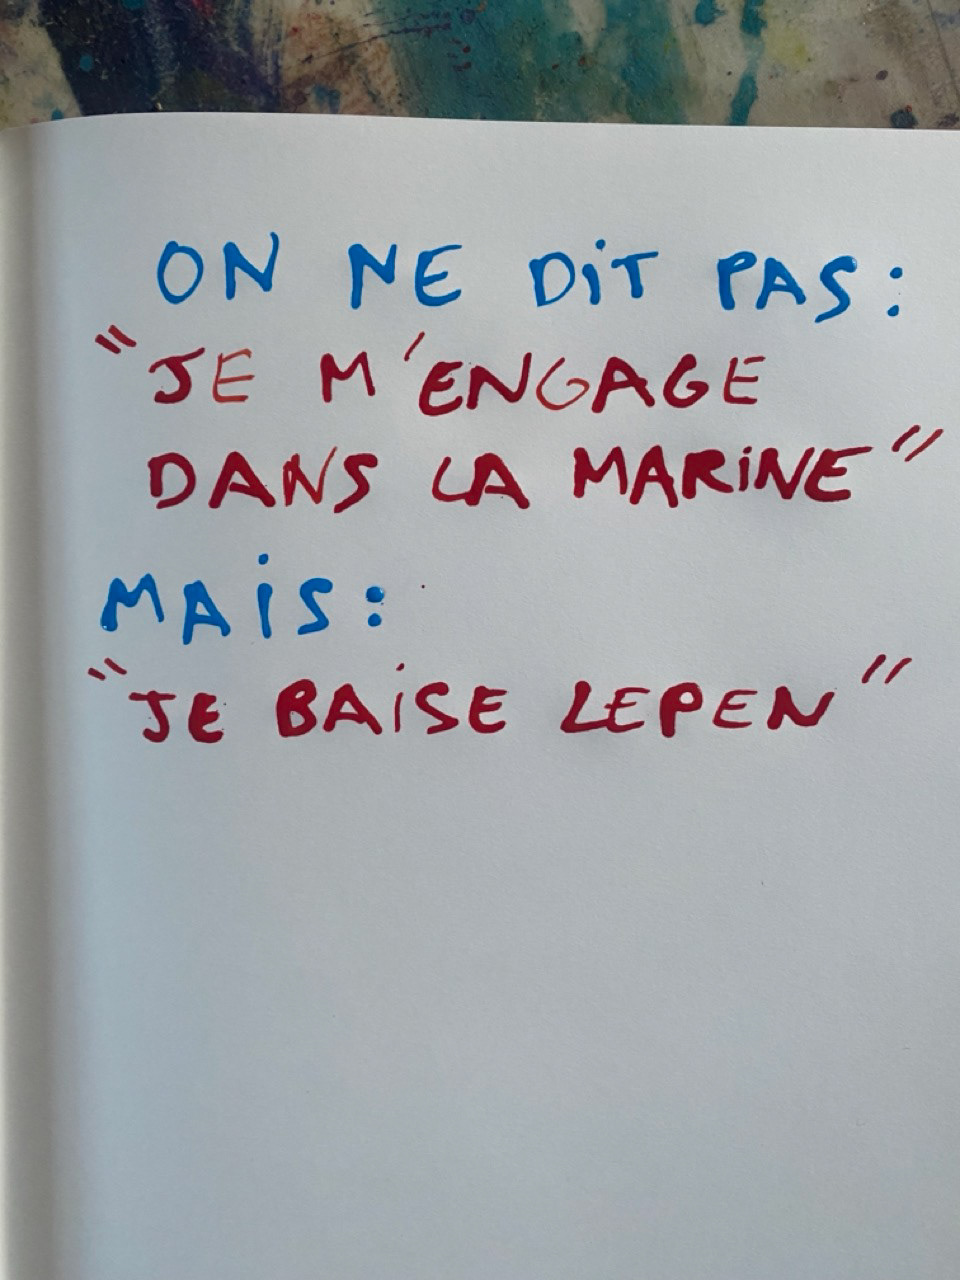 ON NE DiT PAS :
"JE M'ENGAGE
DANS LA MARiNE"
MAiS :
"JE BAiSE LEPEN"